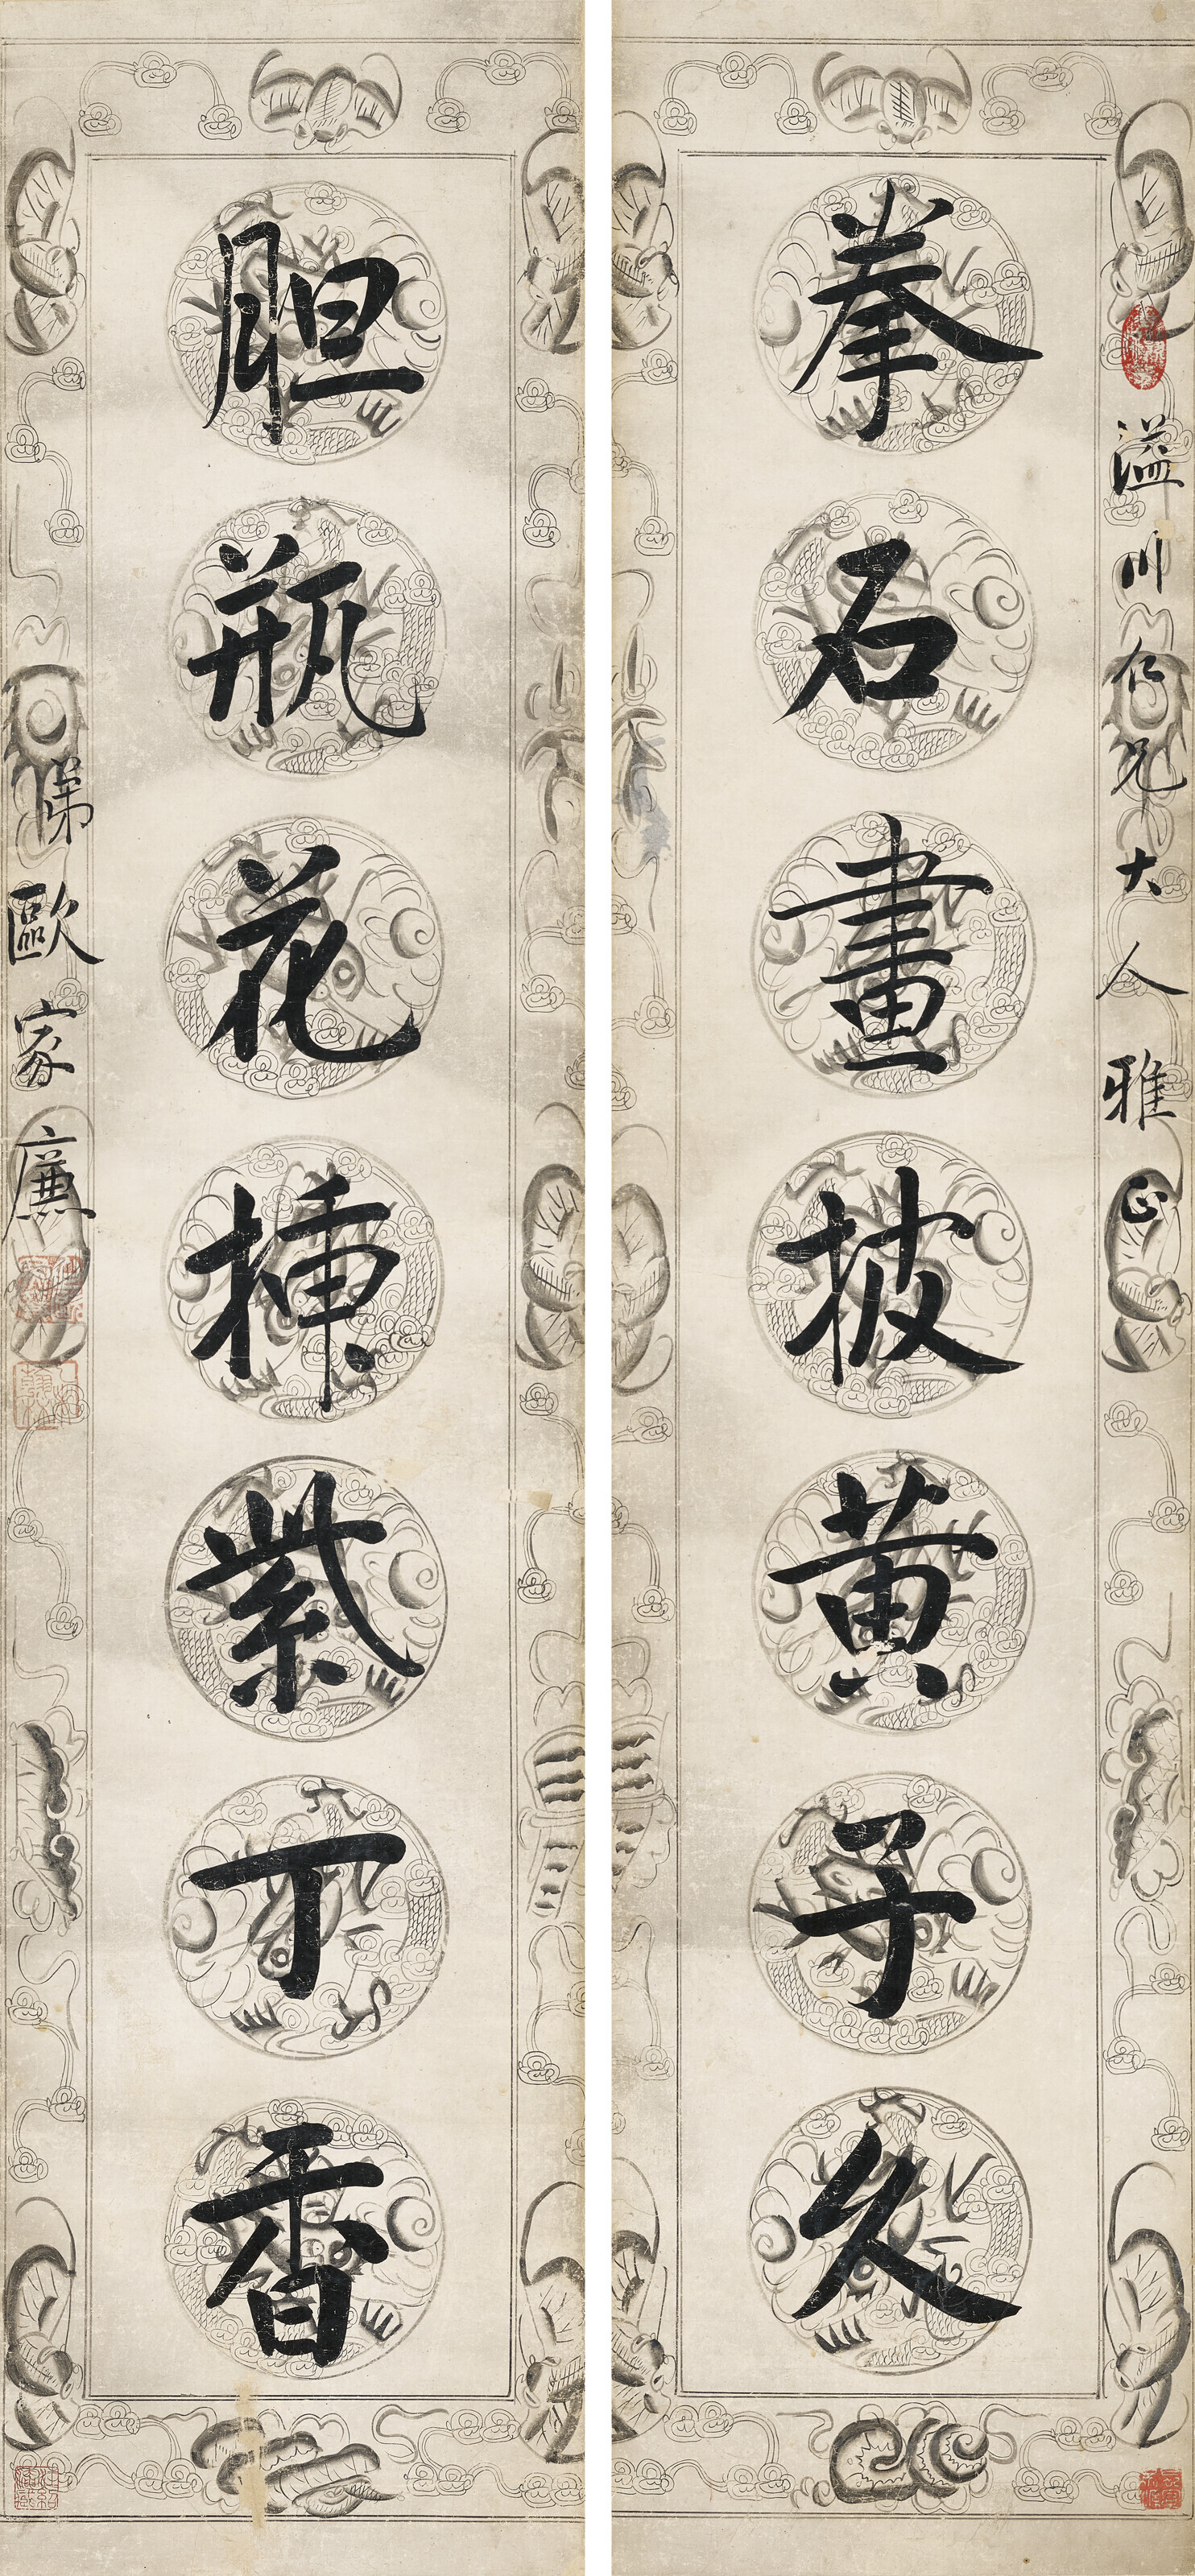 溢川仁兄大人雅正
拳石畫披黄子久
胆瓶花插紫丁香
弟歐家廉